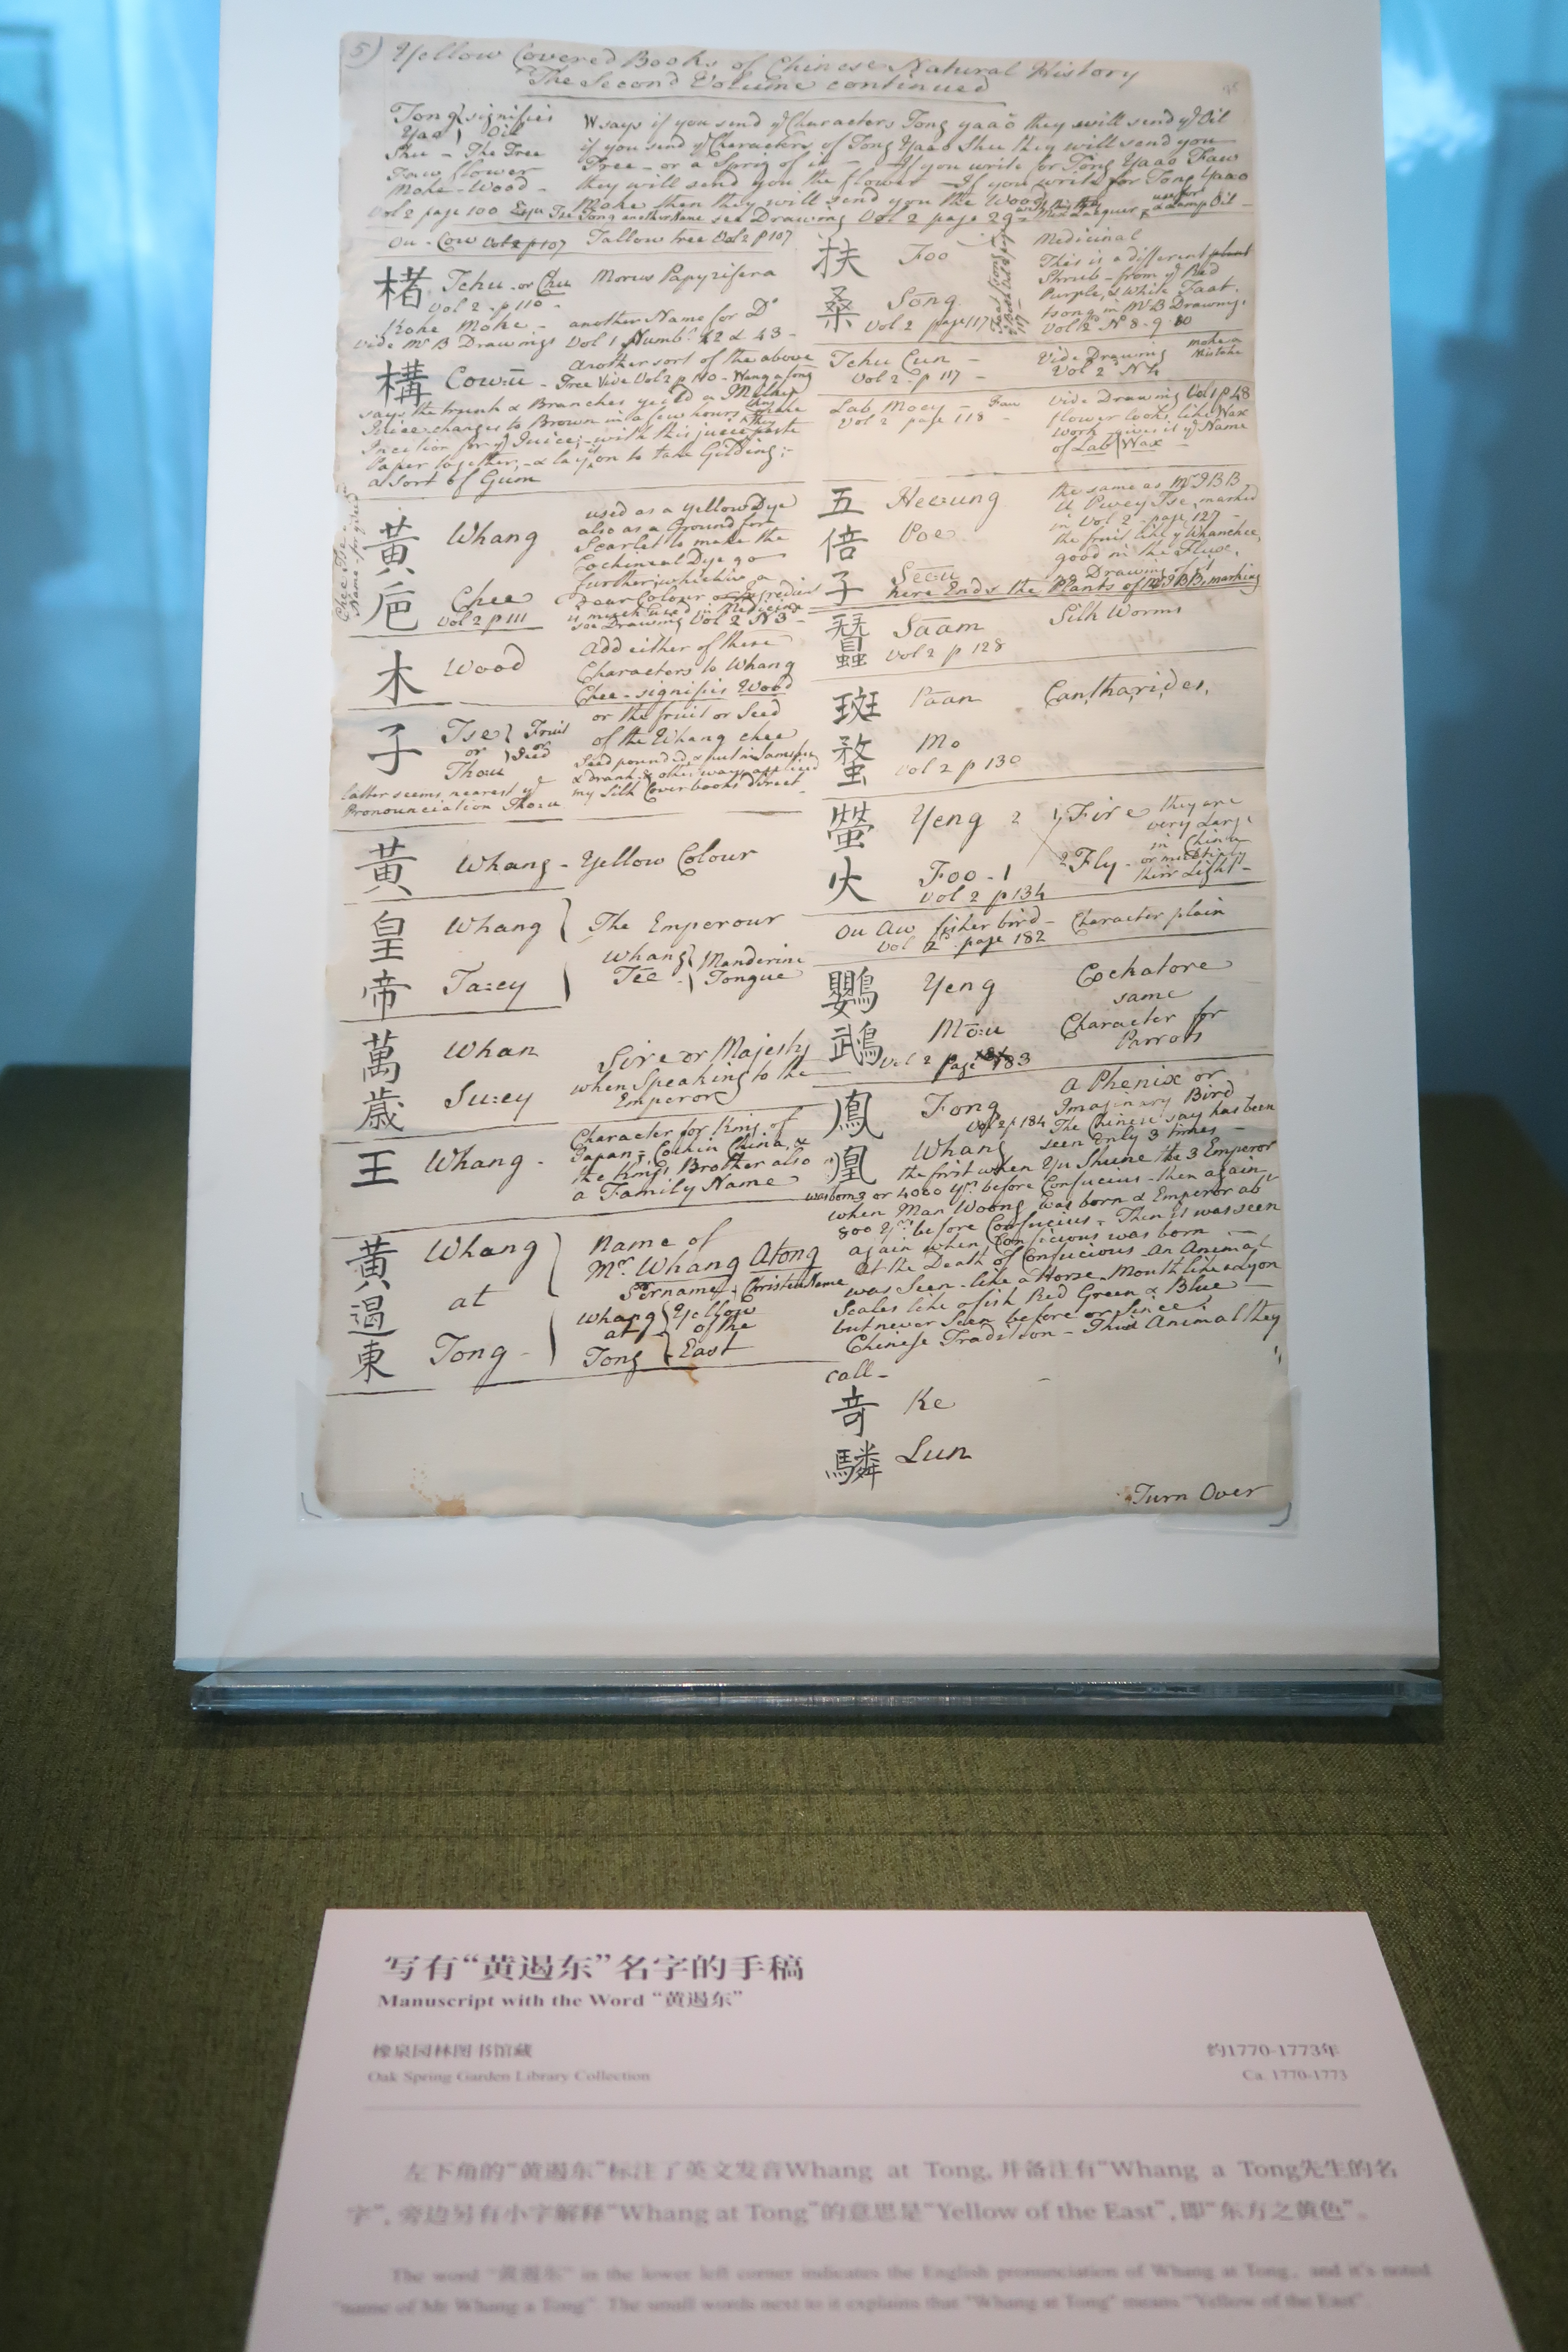 5) Yellow Covered Books of Chinese Natural History
The Second Volume continued
Tong } signifies
Yaa } Oil
Shu - The Tree
Faw flower
Moke - Wood -
W says if you send yͤ Characters Tong yaao they will send yͤ Oil
if you send yͤ Characters of Tong Yaao Shu they will send you
Tree - or a Sprig of it - If you write for Tong Yaao Faw
they will send you the flower - If you write for Tong Yaao
Moke then they will send you the Wood
Vol 2 page 100 Tong another Name see Drawing Vol 2 page 29
Ou - Cow Vol 2 p 107 Tallow tree Vol 2 p 107
楮 Tchu or Chu Morus Papyrifera
Vol 2 - p 110 -
Koke Moke - another Name for Dͦ
vide Mͬ B Drawings Vol 1 Numbͬ 42 & 43 -
構 Cowū - another sort of the above
Tree Vide Vol 2 p 110 - Wang a tong
says the trunk & Branches yeild a Milky
Juice changes to Brown in a few hours
Incition for yͤ Juice; - with this juice paste
Paper together, - & lay it on to take Gilding; -
a sort of Gum
黃 Whang
梔 Chee
Vol 2 p 111
used as a yellow Dye
also as a Ground for
Scarlet to make the
Cochineal Dye go
further, which is a
dear Colour
is much used in Medicine
see Drawing Vol 2 N 3 -
木 Wood
Add either of these
Characters to Whang
Chee - signifis Wood
子 Tse } Fruit
or } or
Thou } Seed
or the fruit or Seed
of the Whang chee
Seed pounded & put in
& drank & other ways
my Silk Cover books direct -
latter seems nearest yͤ
Pronounciation Thou
黃 Whang - Yellow Colour
皇 Whang } The Emperour
帝 Ta:ey }
Whang } Manderine
Tee - } Tongue
萬 Whan
歲 Su:ey
Sire or Majesty
when Speaking to the
Emperor
王 Whang -
Character for King of
Japan, Cochin China, &
the Kings Brother also
a Family Name
黃 Whang
遏 at
東 Tong -
Name of
Mͬ Whang Atong
Sirname, Christen Name
Whang } Yellow
at } of the
Tong } East
扶 Foo
桑 Sōng
Vol 2 page 117
Medicinal
This is a different plant
Shrub - from yͤ Red
Purple, & White Faat
tsong in Mͬ B Drawing,
Vol 1 N 8 - 9 10
Tchu Cun -
Vol 2 - p 117 -
Vide Drawing
Vol 2 N 4
make a
Mistake
Lab Moey - Faw
Vol 2 page 118 -
Vide Drawing Vol 1 p 48
flower looks like Wax
Work - gives it yͤ Name
of Lab | Wax -
五 Heeung
倍 Poe
子 Seeu
the same as Mͬ J B B
U Pwey Tse, marked
in Vol 2 - page 127 -
the fruit like yͤ Whanchee,
good in the Fluxe,
no Drawing of it
here Ends the Plants of Mͬ J B B, marking
蠶 Saam
Vol 2 p 128
Silk Worms
斑 Paan
蝥 Mo
Vol 2 p 130
Cantharides,
螢 Yeng 2
火 Foo - 1
Vol 2 p 134
1 Fire
2 Fly -
they are
very Large
in China
their Light -
Ou Aw fisher bird - Character plain
Vol 2 page 182
鸚 Yeng
鵡 Mō:u
Vol 2 page 183
Cockatore
same
Character for
Parrots
鳳 Fong
Vol 2 p 184
凰 Whang
a Phenix or
Imaginary Bird
The Chinese say has been
seen only 3 times -
the first when Yu Shune the 3 Emperor
was born 3 or 4000 yͬˢ before Confucius - then again
when Man Woong was born & Emperor abͭ
800 Yͬˢ before Confucius - Then it was seen
again when Conficious was born -
At the Death of Confucious An Animal
was Seen - like a Horse - Mouth like a Lyon
Scales like a fish Red Green & Blue -
but never Seen before or Since.
Chinese Tradition - This Animal they
call -
奇 Ke
驎 Lun
Turn Over
写有“黄遏东”名字的手稿
Manuscript with the Word “黄遏东”
橡泉园林图书馆藏
约1770-1773年
Oak Spring Garden Library Collection
Ca. 1770-1773
左下角的“黄遏东”标注了英文发音Whang at Tong, 并备注有“Whang a Tong先生的名
字”, 旁边另有小字解释“Whang at Tong”的意思是“Yellow of the East”, 即“东方之黄色”。
The word “黄遏东” in the lower left corner indicates the English pronunciation of Whang at Tong, and it's noted
“name of Mr Whang a Tong”. The small words next to it explains that “Whang at Tong” means “Yellow of the East”.